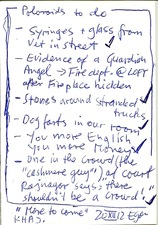 Poloroids to do
- Syringes + glass from
Vet in street ✓
- Evidence of a Guardian
Angel → Fire dept - @ LOFT
after Fireplace hidden
- Stones around stranded
trucks
- Dog farts in our room ✓
- You more English
You more Money ✓
- One in the crowd (the
"cashmere guy"), at court
Rajnagar says: there
shouldn't be a crowd!
"More to come"
KHAJ.